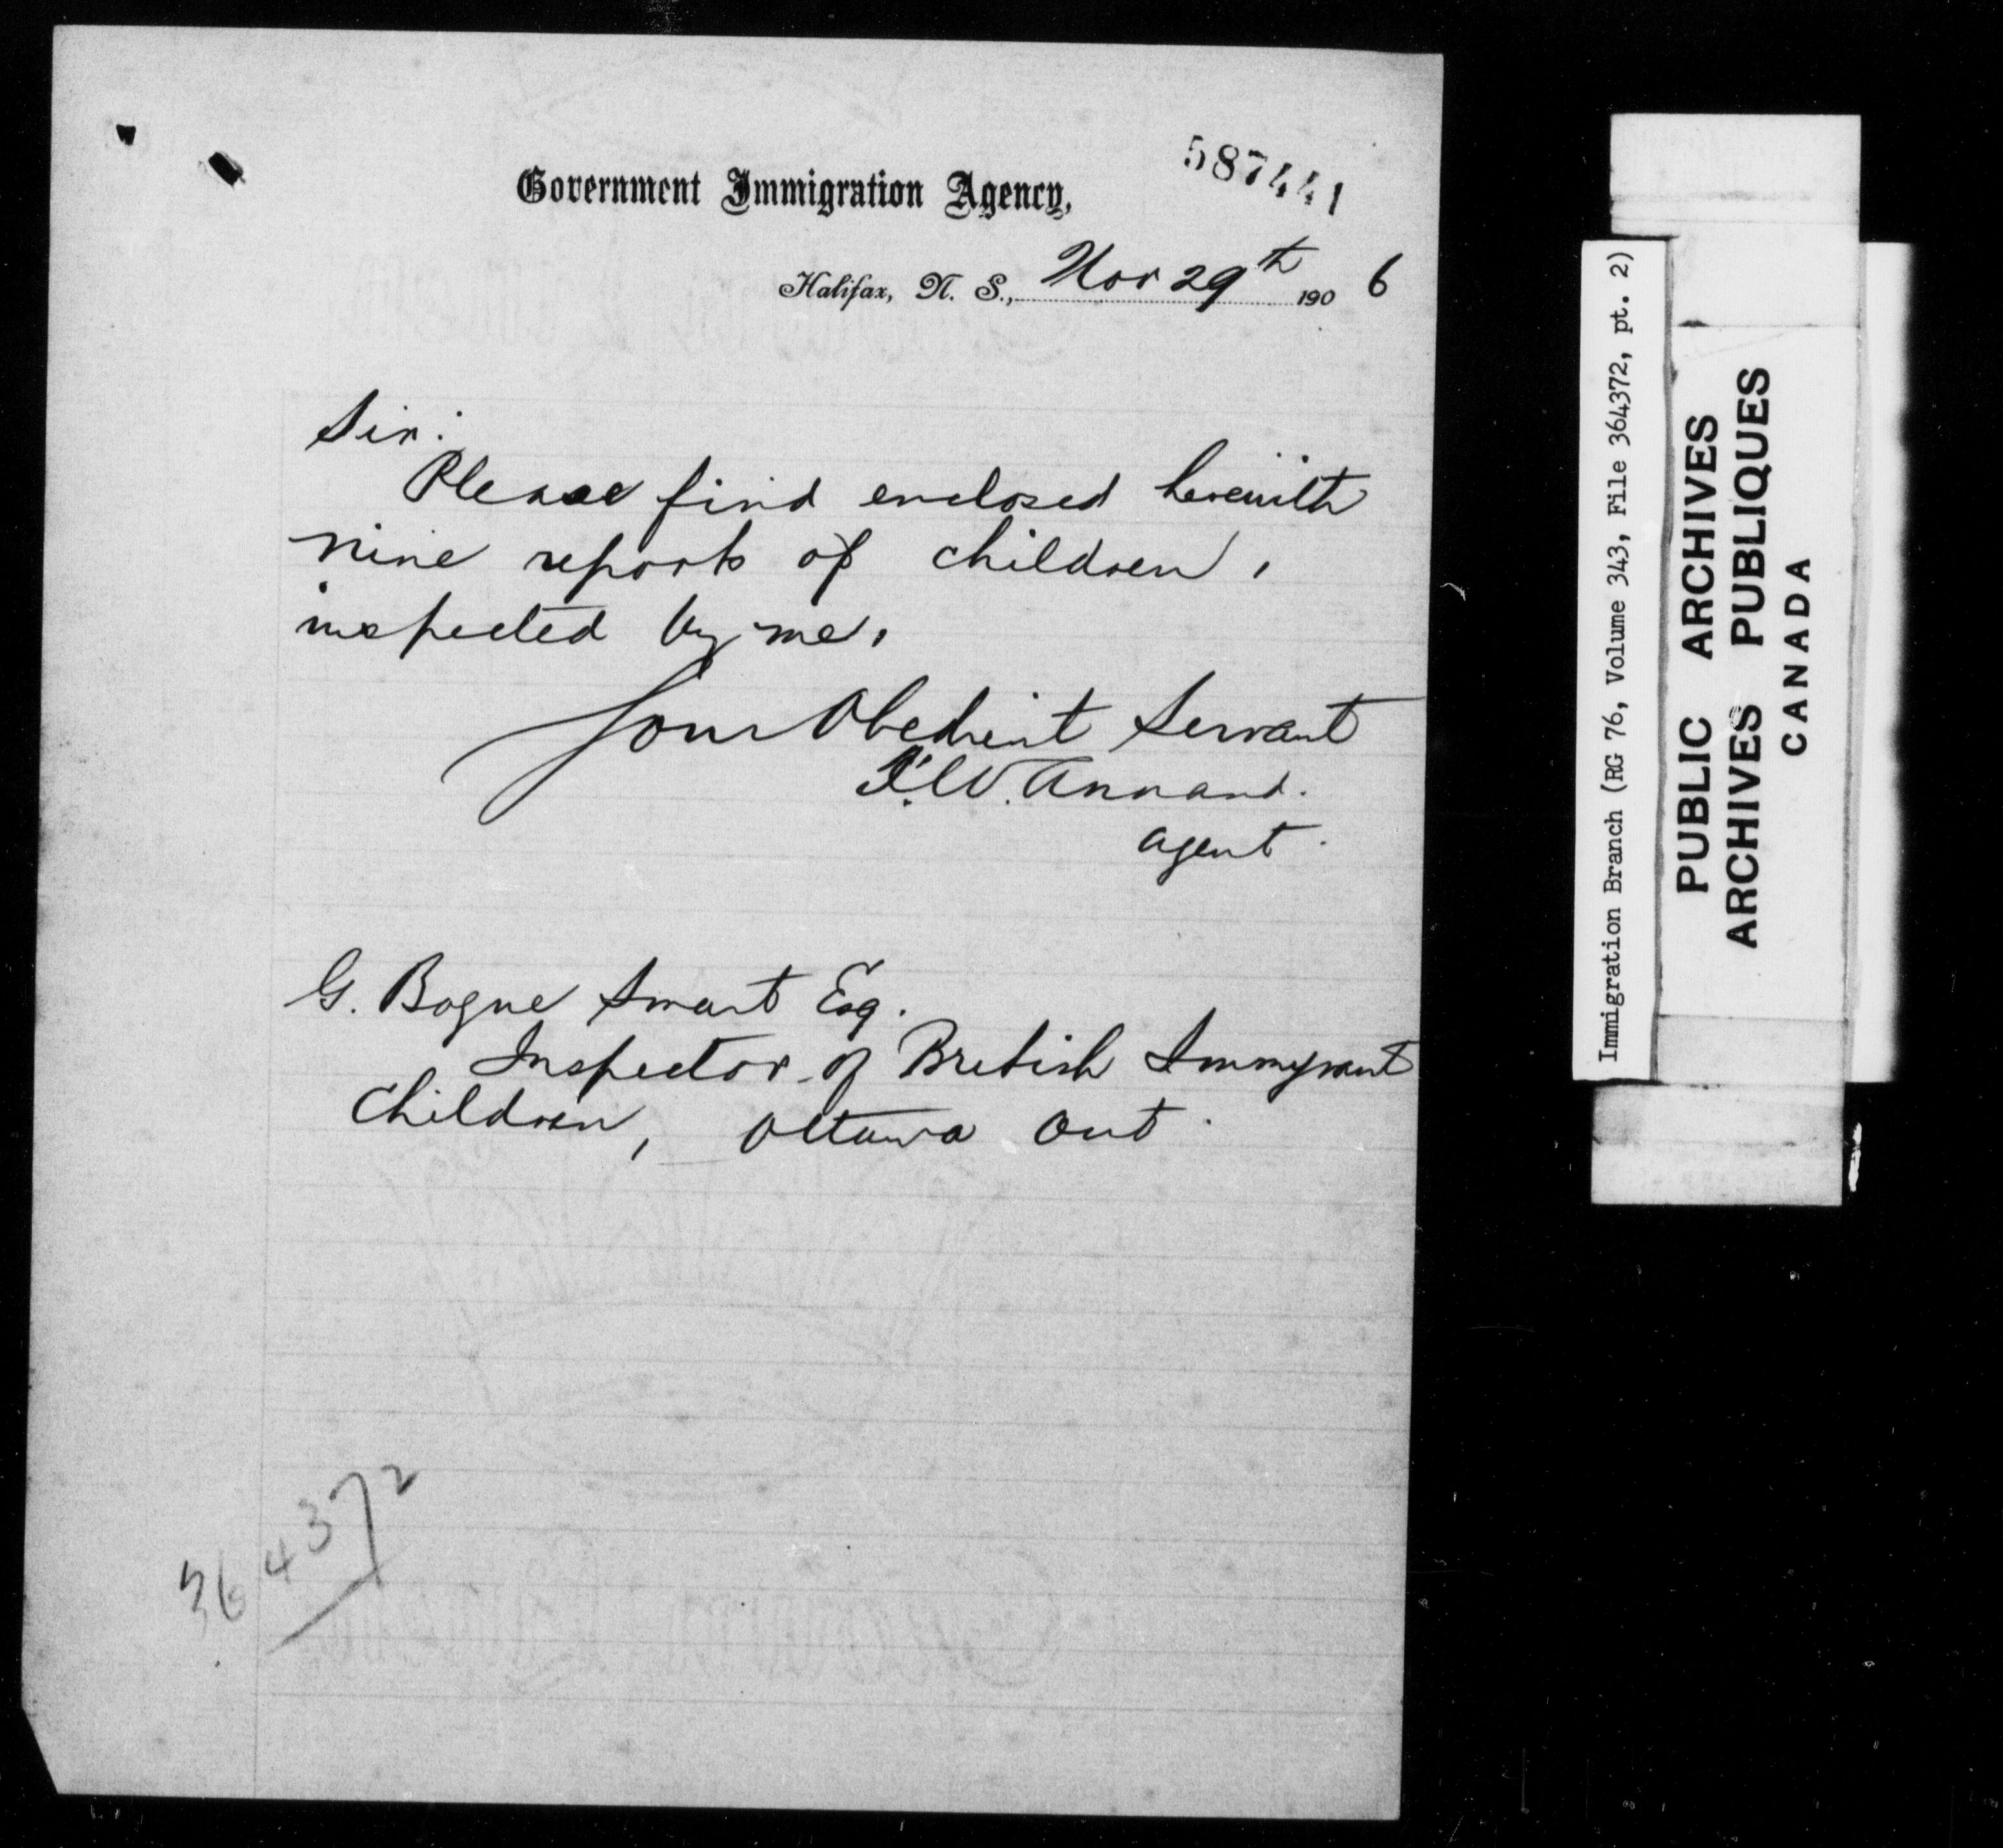 587441
Government Immigration Agency,
Halifax, N. S., Nov 29th 1906
Sir:
Please find enclosed herewith
nine reports of children,
inspected by me.
Your Obedient Servant
F.W. Annand.
agent.
G. Bogue Smart Esq.
Inspector of British Immigrant
Children, Ottawa Ont.
364372
Immigration Branch (RG 76, Volume 343, File 364372, pt. 2)
PUBLIC ARCHIVES
ARCHIVES PUBLIQUES
CANADA